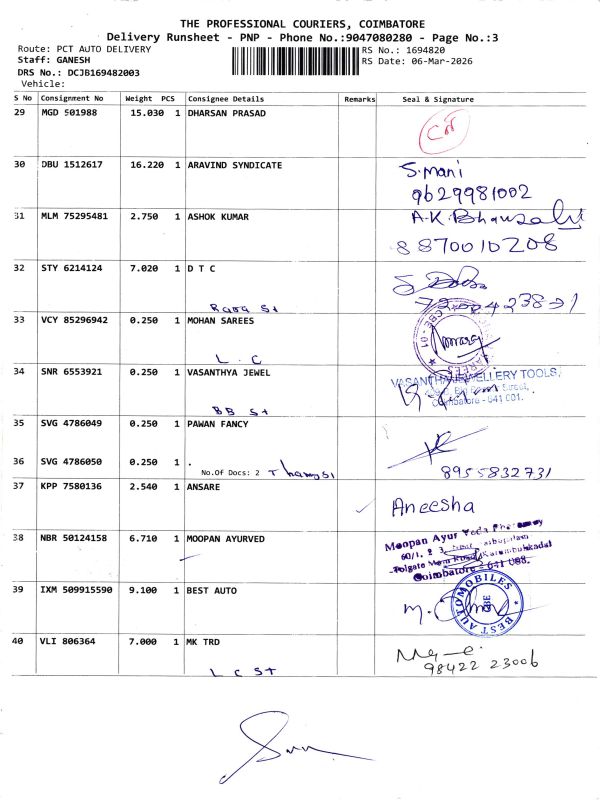 THE PROFESSIONAL COURIERS, COIMBATORE
Delivery Runsheet - PNP - Phone No.:9047080280 - Page No.:3
Route: PCT AUTO DELIVERY
RS No.: 1694820
Staff: GANESH
RS Date: 06-Mar-2026
DRS No.: DCJB169482003
Vehicle:
S No Consignment No Weight PCS Consignee Details Remarks Seal & Signature
29 MGD 501988 15.030 1 DHARSAN PRASAD
30 DBU 1512617 16.220 1 ARAVIND SYNDICATE S.mani
9629981002
31 MLM 75295481 2.750 1 ASHOK KUMAR A.K.Bhausali
8870010208
32 STY 6214124 7.020 1 D T C
Raja St
33 VCY 85296942 0.250 1 MOHAN SAREES CBE-01
L.C
34 SNR 6553921 0.250 1 VASANTHYA JEWEL VASANTHA JEWELLERY TOOLS,
Street,
Coimbatore - 641 001.
BB St
35 SVG 4786049 0.250 1 PAWAN FANCY
36 SVG 4786050 0.250 1 .
No.Of Docs: 2 8955832731
37 KPP 7580136 2.540 1 ANSARE Aneesha
38 NBR 50124158 6.710 1 MOOPAN AYURVED Moopan Ayur Veda Pharmacy
60/1,
Coimbatore - 641 008.
39 IXM 509915590 9.100 1 BEST AUTO BEST AUTOMOBILES CBE
40 VLI 806364 7.000 1 MK TRD
98422 23006
L C St